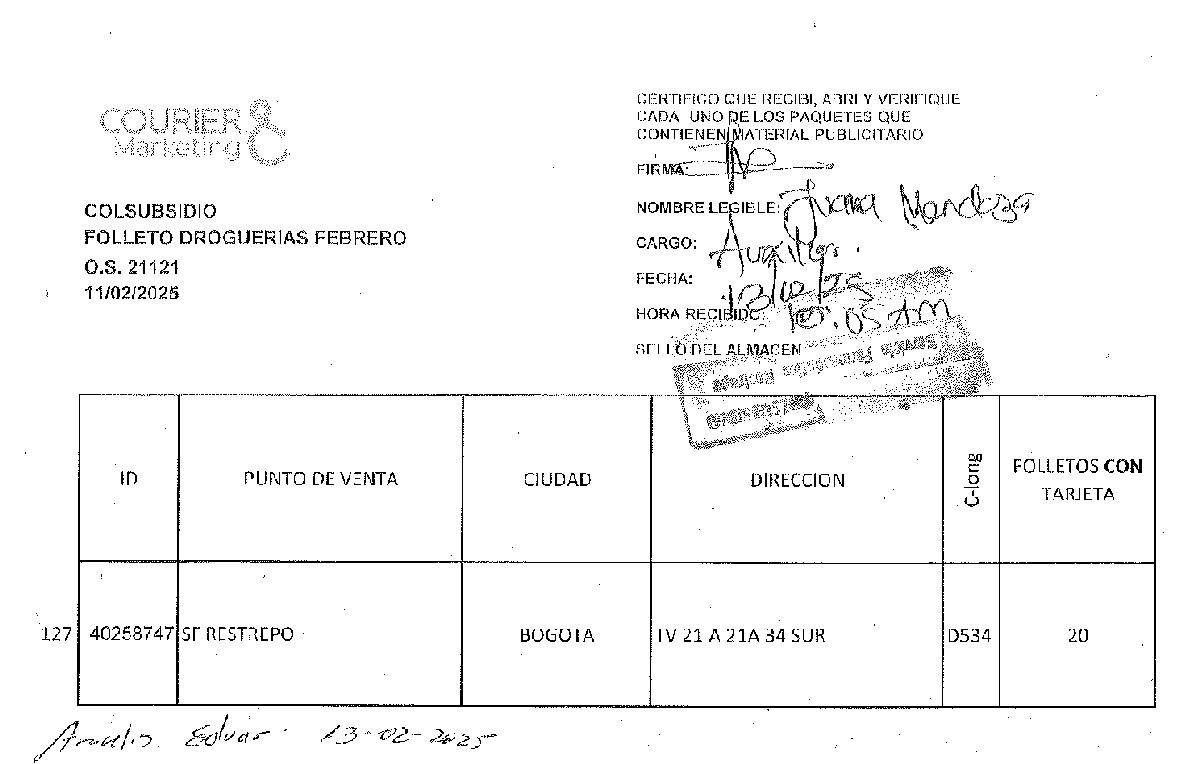 COURIER
Marketing
COLSUBSIDIO
FOLLETO DROGUERIAS FEBRERO
O.S. 21121
11/02/2025
CERTIFICO QUE RECIBI, ABRI Y VERIFIQUE
CADA UNO DE LOS PAQUETES QUE
CONTIENEN MATERIAL PUBLICITARIO
FIRMA:
NOMBRE LEGIBLE: Mendoza
CARGO: Auxiliar.
FECHA: 13/02/25
HORA RECIBIDO: 10:05 AM
SELLO DEL ALMACEN
ID PUNTO DE VENTA CIUDAD DIRECCION C-long FOLLETOS CON TARJETA
127 40258747 SF RESTREPO BOGOTA TV 21 A 21A 34 SUR D534 20
Eduar 13-02-2025